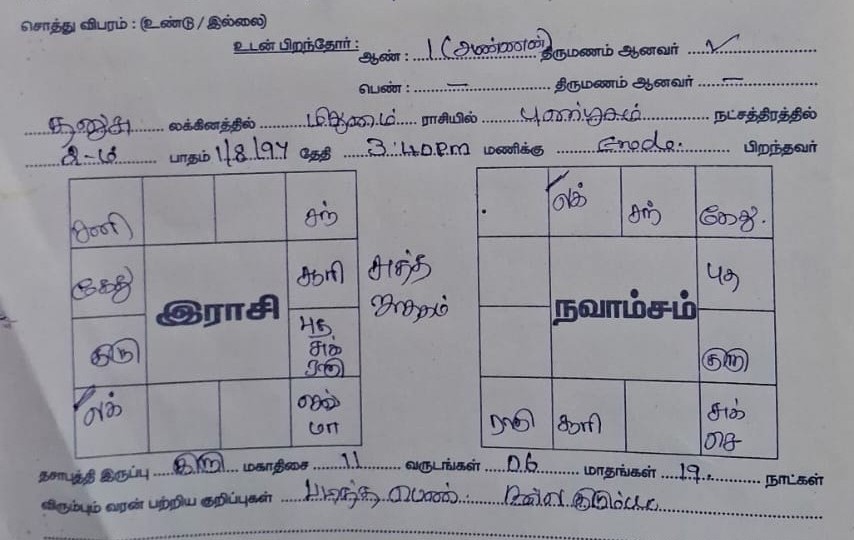 சொத்து விபரம் : (உண்டு / இல்லை)
உடன் பிறந்தோர் : ஆண் : 1 (அண்ணன்) திருமணம் ஆனவர் ✓
பெண் : – திருமணம் ஆனவர் –
தனுசு லக்கினத்தில் மிதுனம் ராசியில் புனர்பூசம் நட்சத்திரத்தில்
2-ம் பாதம் 1/8/97 தேதி 3:40 P.M மணிக்கு Erode. பிறந்தவர்
சனி சந்
லக் சந் கேது.
கேது சூரி சுத்த ஜாதகம் புத
இராசி நவாம்சம்
குரு புத சுக் ராகு குரு
லக் செவ் மா
ராகு சூரி சுக் செ
தசாபுத்தி இருப்பு குரு மகாதிசை 11 வருடங்கள் 06 மாதங்கள் 19 நாட்கள்
விரும்பும் வரன் பற்றிய குறிப்புகள் படித்த பெண். நல்ல குடும்பம்